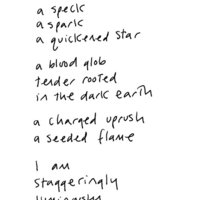 a speck
a spark
a quickened star
a blood glob
tender rooted
in the dark earth
a charged uprush
a seeded flame
I am
staggeringly